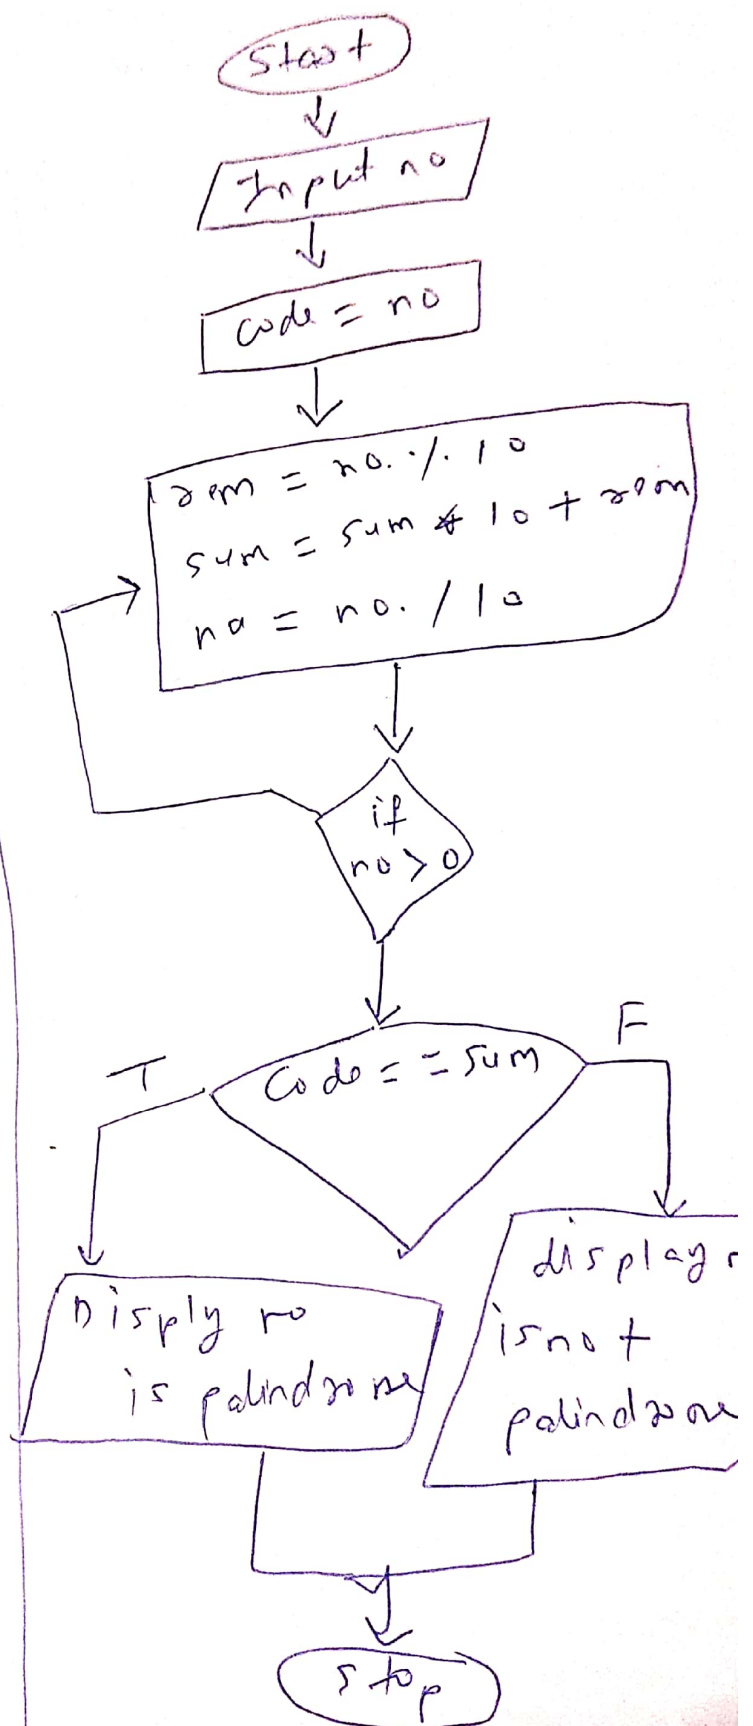 Start
Input no
code = no
rem = no. % 10
sum = sum * 10 + rem
no = no. / 10
if
no > 0
T
F
Code = = sum
Disply no
is palindrome
display
is not
palindrome
stop